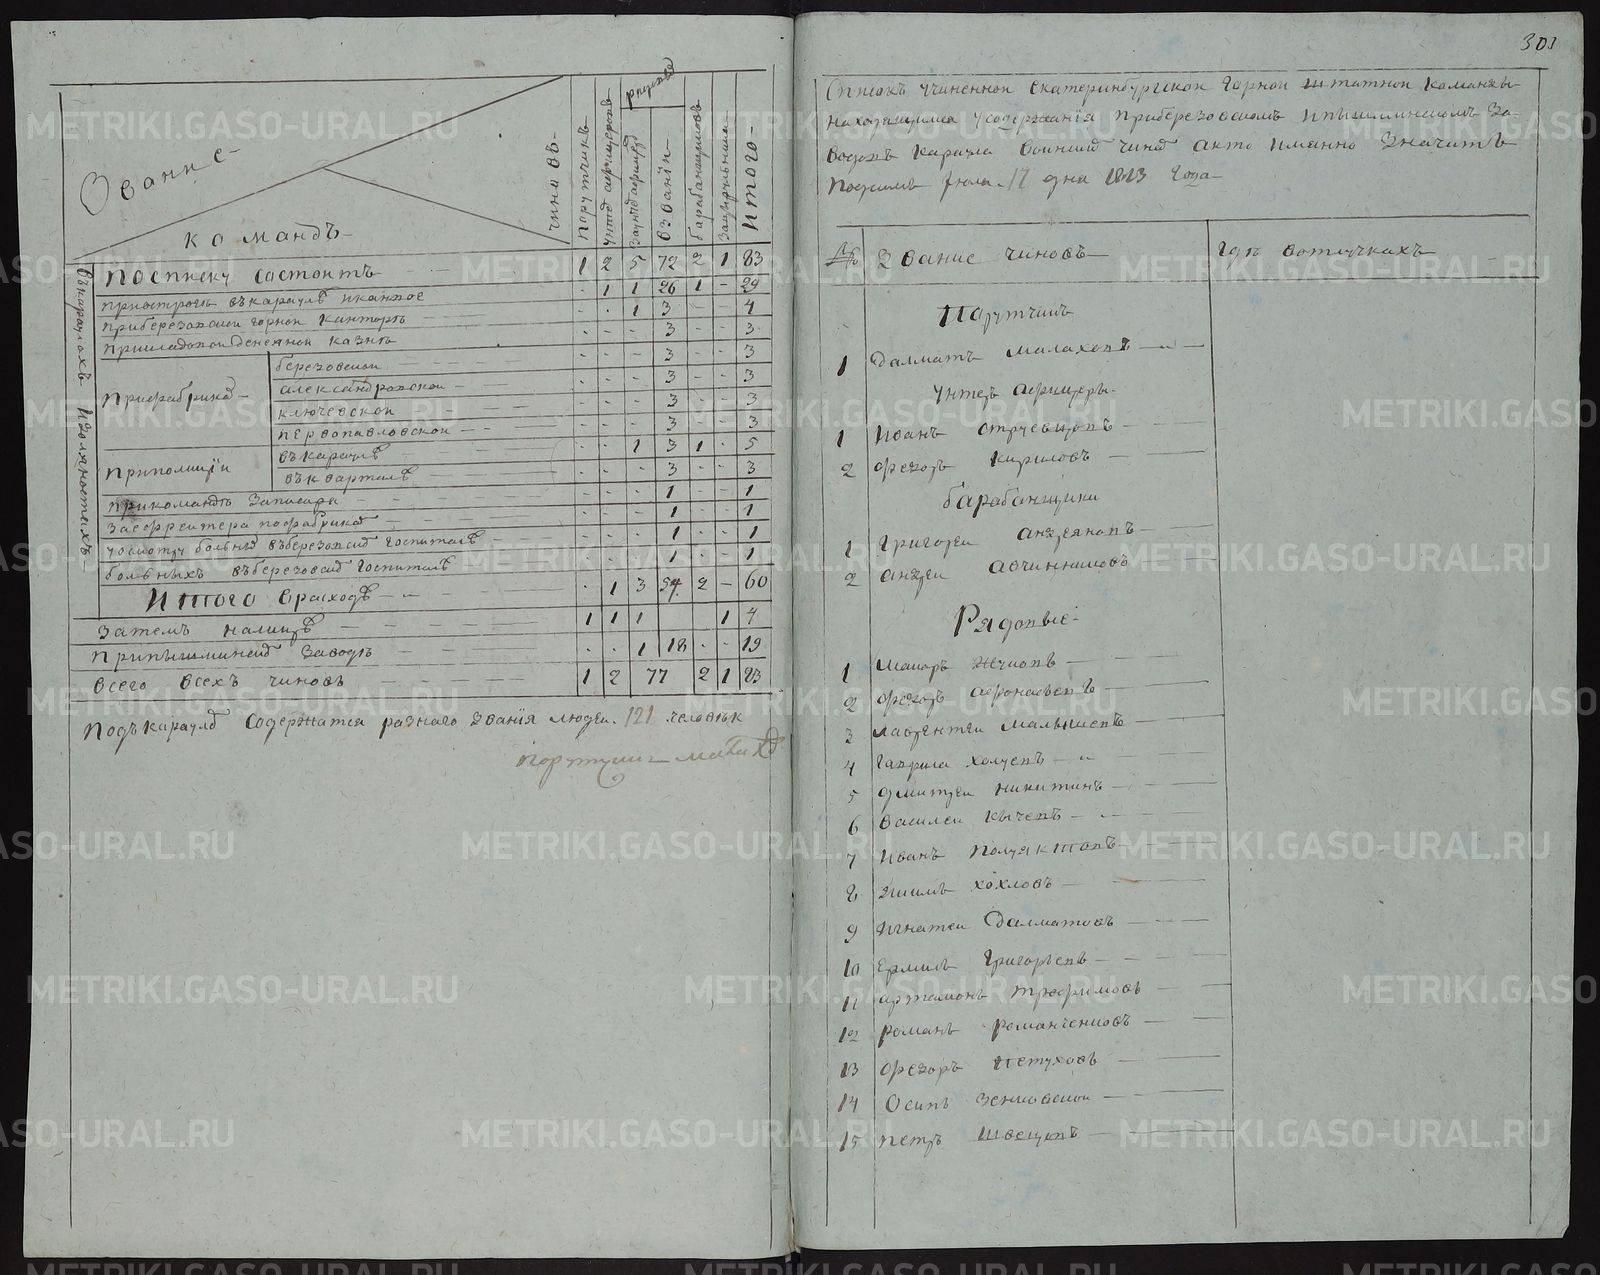 Званіе
командъ
чиновъ
Порутчикъ
унтеръ афицеровъ
рядовые
За унтеръ афицеръ
Взваніи
барабанщиковъ
Зацирульника
Итого
Вкараулахъ Идолжностяхъ
Посписку состоитъ 1 2 5 72 2 1 83
Приострогѣ вкараулѣ · 1 1 26 1 - 29
Приберезовской горной канторѣ · · 1 3 - - 4
Прикладовой денежной казнѣ - - - 3 - - 3
Прифабрикѣ
березовской - - - 3 - - 3
александровской - - - 3 - - 3
ключевской - - - 3 - - 3
первопавловской - - - 3 - - 3
Приполиціи
вкараулѣ · · 1 3 1 · 5
вквартале - - - 3 - - 3
Прикомандѣ Записаря - - - 1 - - 1
Заефрейтера пофабрикѣ - - - 1 - - 1
больныхъ въберезовской госпиталѣ - - - 1 - - 1
больныхъ въберезовской госпиталѣ - - - 1 - - 1
Итого врасходѣ · 1 3 54 2 - 60
Затемъ налицѣ 1 1 1 1 4
Припышминской заводѣ · · 1 18 · · 19
Всего всехъ чиновъ 1 2 77 2 1 83
Подъкарауломъ содержатся разнаго званія людей 121 человѣк
301
Списокъ учиненной екатеринбургской горной штатной команды
находящимся усодержанія Приберезовскомъ Ипышминскомъ За-
водахъ караула воинскимъ чинамъ акто имянно Значитъ
Подсимъ июля 17 дня 1813 Года
№ Звание чиновъ Гдѣ вотлучкахъ
Порутчикъ
1 Далматъ Малаховъ
Унтеръ афицеры
1 Иванъ Стручковъ
2 Федоръ Кириловъ
барабанщики
1 Григорей андреяновъ
2 андрей авчинниковъ
Рядовые
1 Макаръ Жуковъ
2 Федоръ афонасьевъ
3 лаврентей малышевъ
4 Гаврила холуевъ
5 дмитрей никитинъ
6 Василей Кычевъ
7 Иванъ Полуяктовъ
8 Якимъ хохловъ
9 Игнатей Далматовъ
10 Ермилъ Григорьевъ
11 артамонъ трефиловъ
12 романъ романченковъ
13 федоръ петуховъ
14 Осипъ Зенковской
15 петръ швецовъ